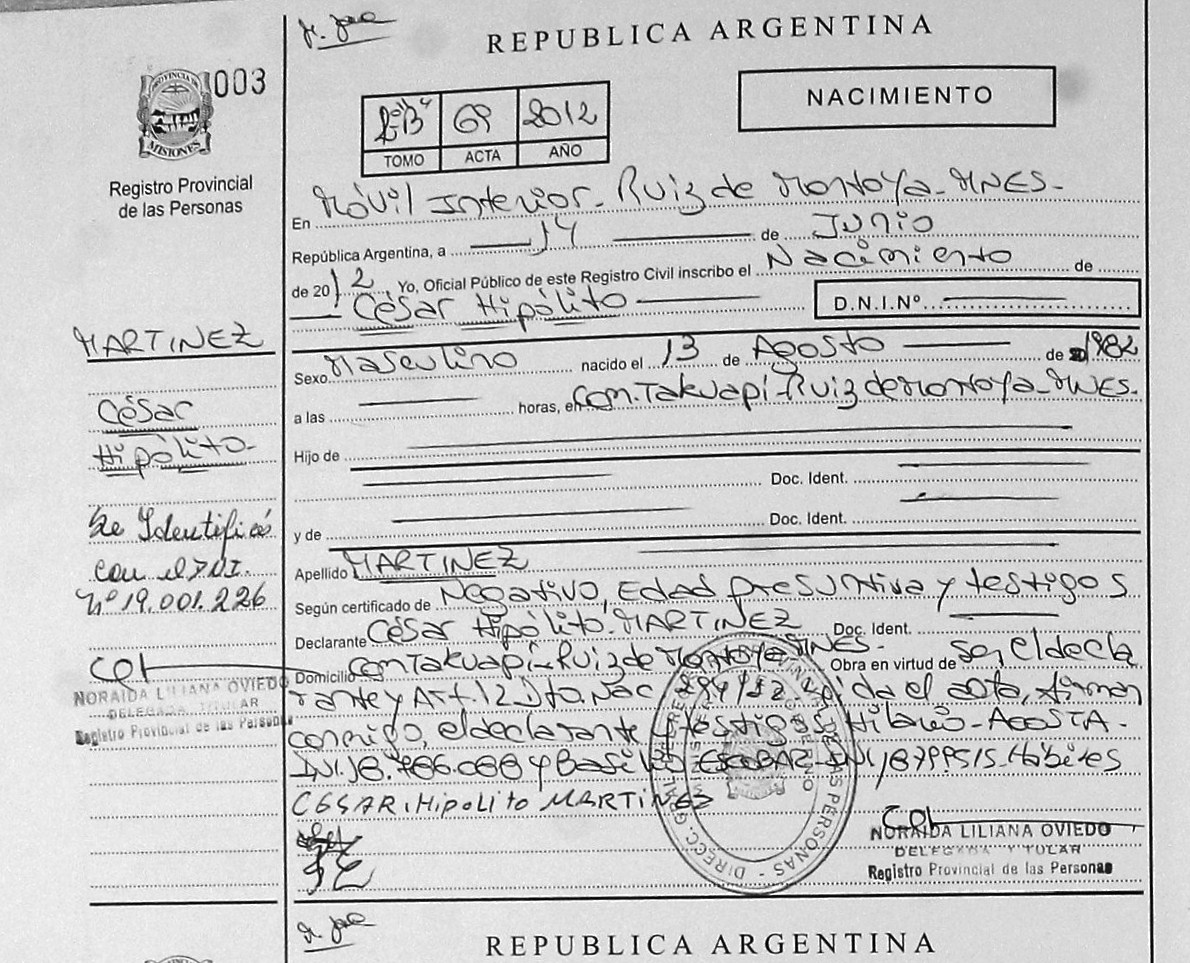 REPUBLICA ARGENTINA
003
PROVINCIA DE
MISIONES
Registro Provincial
de las Personas
69 2012
TOMO ACTA AÑO
NACIMIENTO
En Móvil Interior - Ruiz de Montoya - MNES -
República Argentina, a 14 de Junio
de 2012, Yo, Oficial Público de este Registro Civil inscribo el Nacimiento de
César Hipólito D.N.I.Nº
Sexo Masculino nacido el 13 de Agosto de 1982
a las horas, en Com. Takuapi - Ruiz de Montoya - MNES.
Hijo de
Doc. Ident.
y de Doc. Ident.
Apellido MARTINEZ
Según certificado de Negativo, Edad presuntiva y testigos
Declarante César Hipólito MARTINEZ Doc. Ident.
Domicilio Com Takuapi - Ruiz de Montoya MNES - Obra en virtud de ser el decla
rante y Art. 12 Dto. Nac el acta, firman
conmigo, el declarante y testigos Hilario - ACOSTA -
DNI 18.786.088 y Basilio ESCOBAR - DNI 18799515 - Hábiles
CESAR Hipolito MARTINEZ
MARTINEZ
César
Hipólito -
Se Identificó
con el DNI.
Nº 19.001.226
NORAIDA LILIANA OVIEDO
DELEGADA TITULAR
Registro Provincial de las Personas
NORAIDA LILIANA OVIEDO
DELEGADA TITULAR
Registro Provincial de las Personas
REPUBLICA ARGENTINA